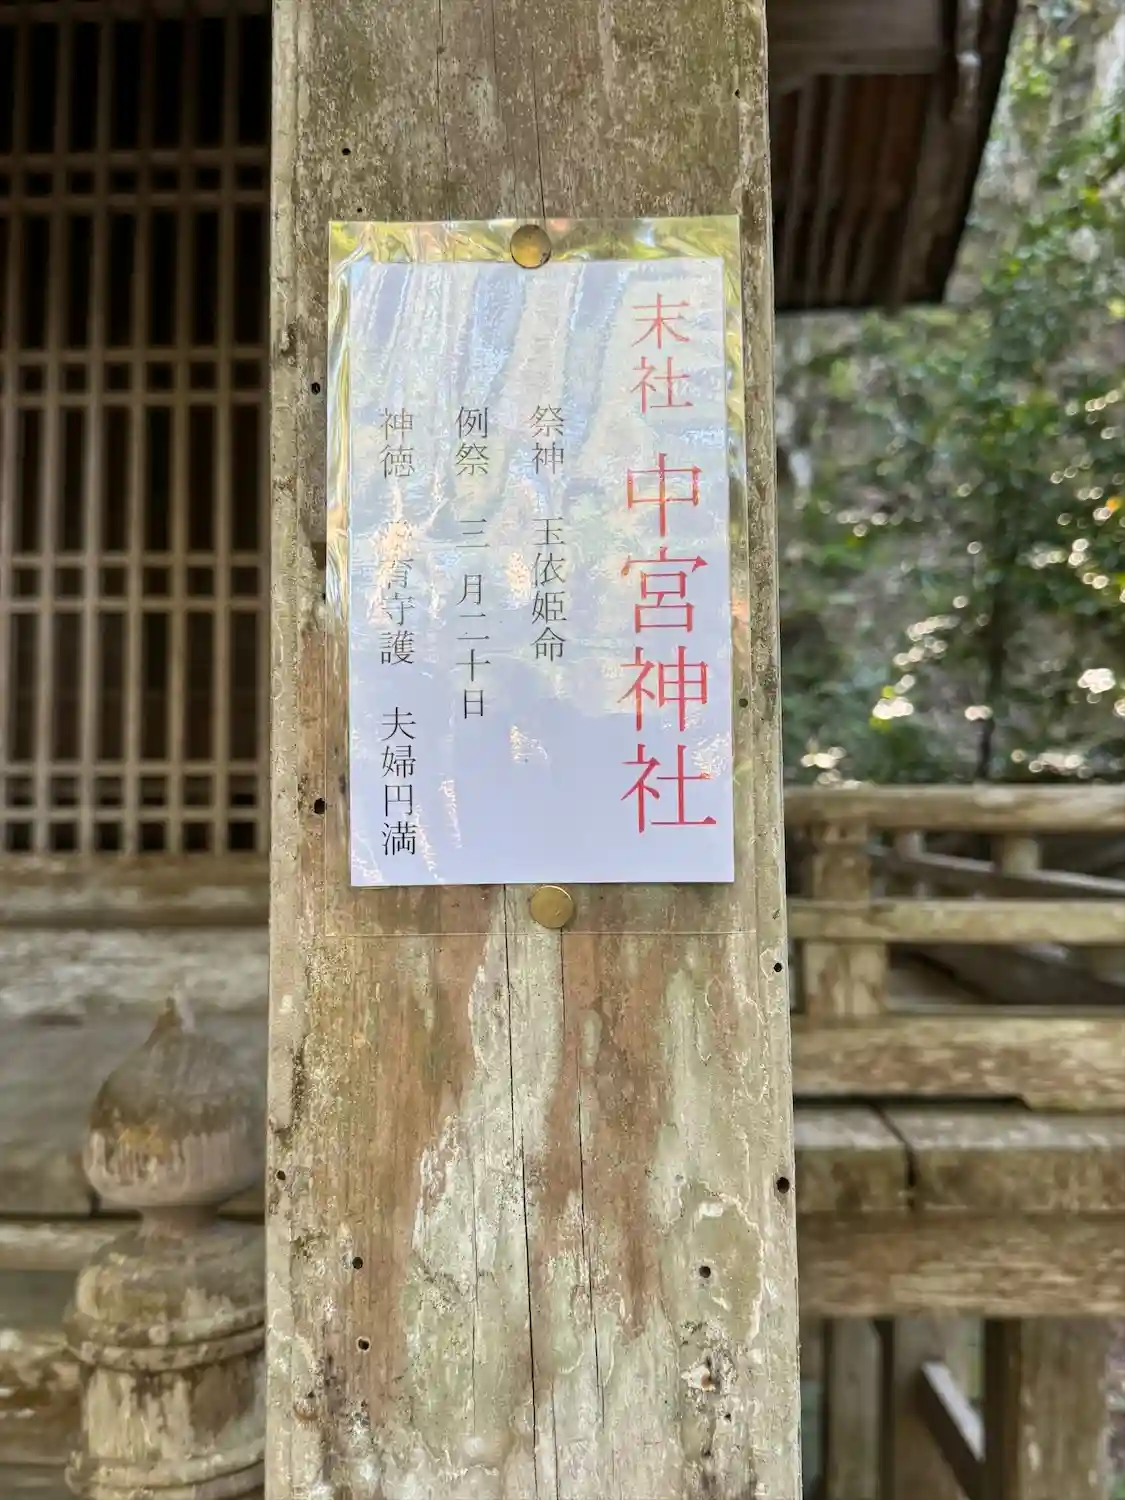 末社 中宮神社
祭神 玉依姫命
例祭 三月二十日
神徳 育守護 夫婦円満